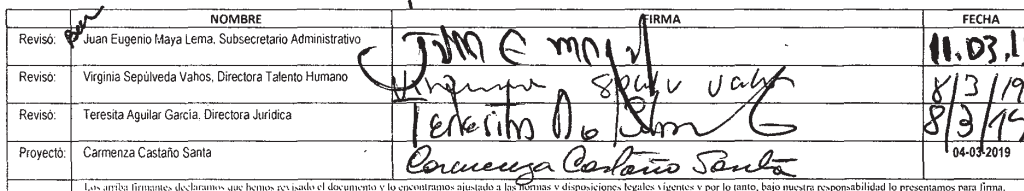 NOMBRE FIRMA FECHA
Revisó: Juan Eugenio Maya Lema, Subsecretario Administrativo 11.03.1
Revisó: Virginia Sepúlveda Vahos, Directora Talento Humano 8/3/19
Revisó: Teresita Aguilar García, Directora Jurídica Teresita 8/3/19
Proyectó: Carmenza Castaño Santa Carmenza Castaño Santa 04-03-2019
Los arriba firmantes declaramos que hemos revisado el documento y lo encontramos ajustado a las normas y disposiciones legales vigentes y por lo tanto, bajo nuestra responsabilidad lo presentamos para firma.